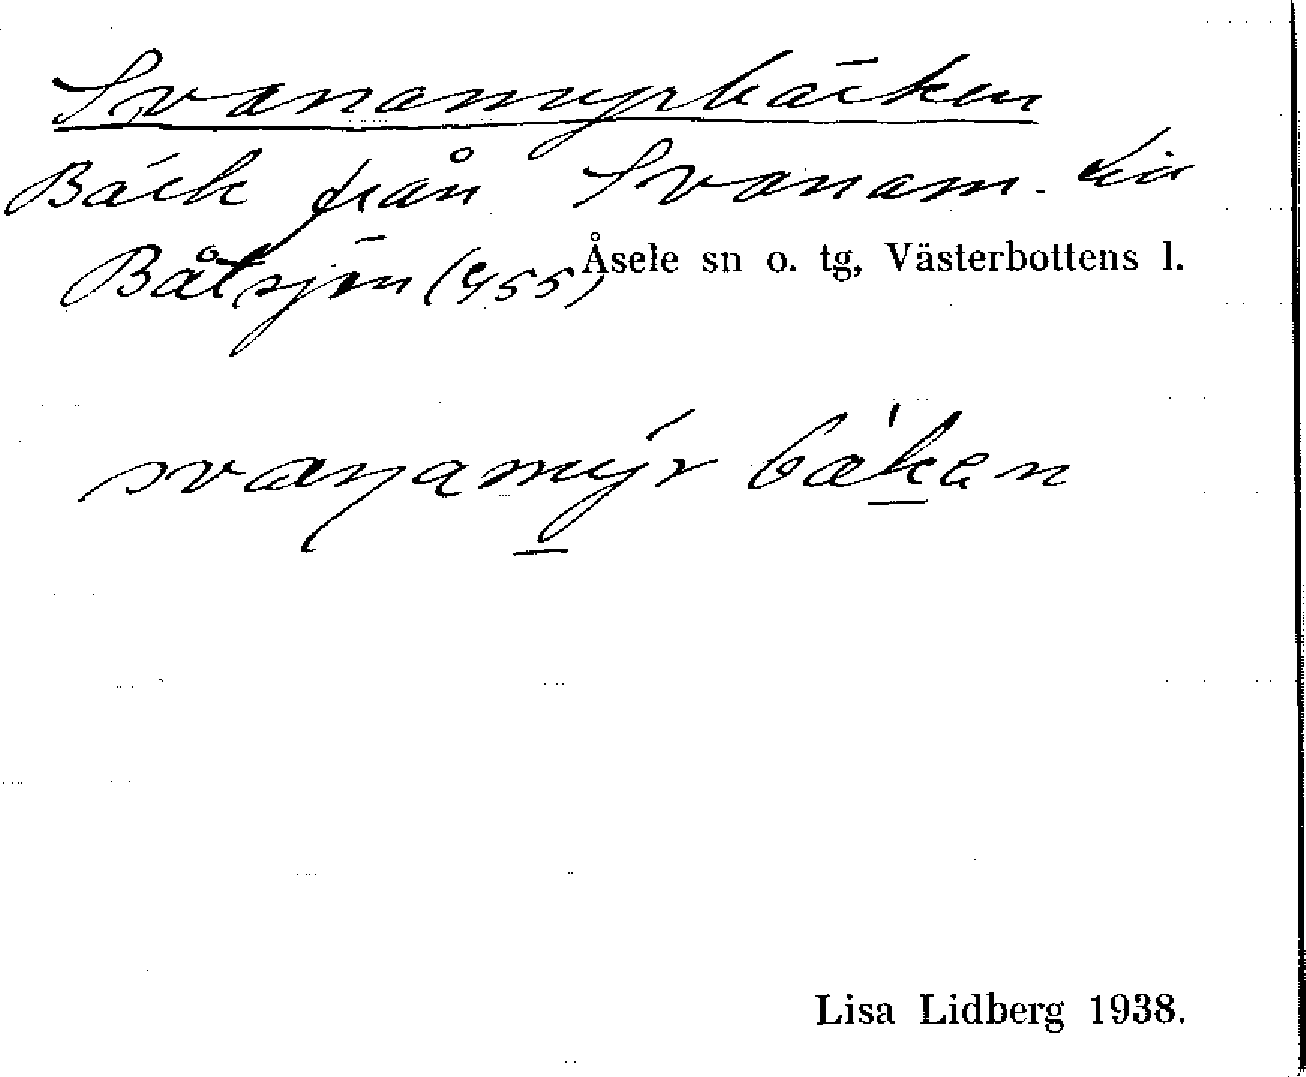 Svanamyrbäcken
Bäck från Svanam. till
Båtsjön (455)
Åsele sn o. tg, Västerbottens l.
svanamýr bäken
Lisa Lidberg 1938.